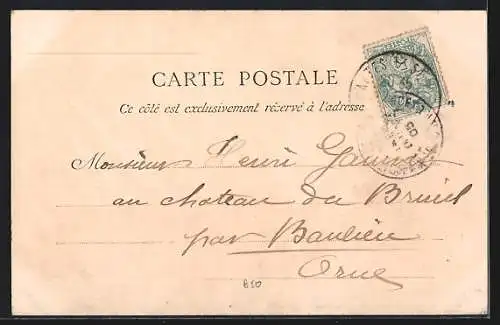 CARTE POSTALE
Ce côté est exclusivement réservé à l'adresse
Monsieur Henri
au chateau du Breuil
par Baulieu
Orne
850